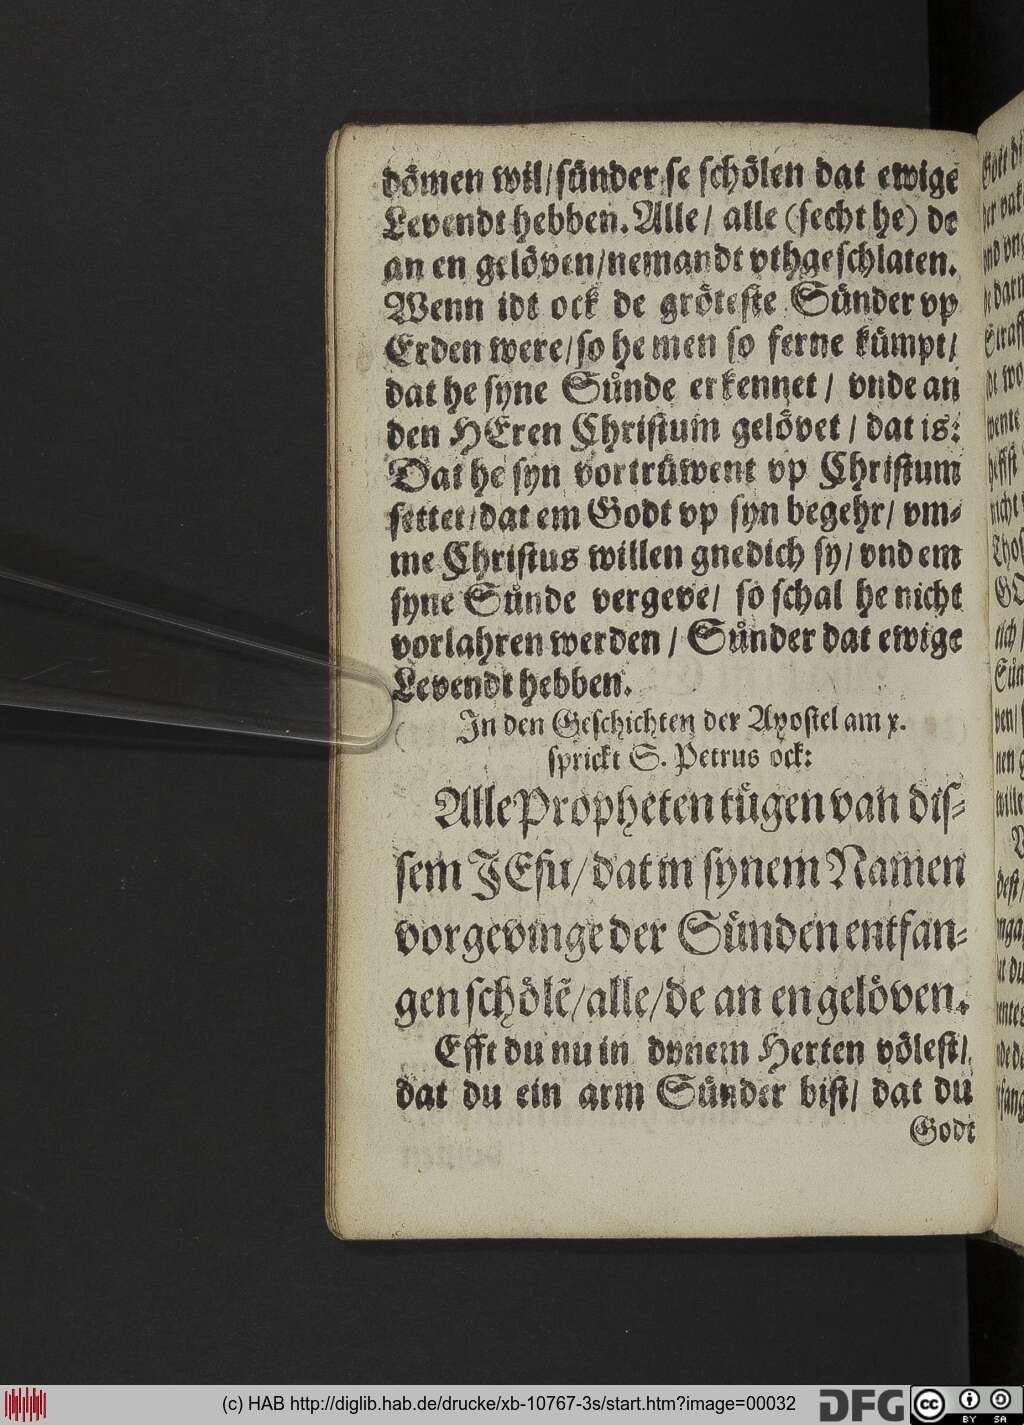 dömen wil/ sünder se schölen dat ewige
Levendt hebben. Alle/ alle (secht he) de
an en gelöven/ nemandt vthgeschlaten.
Wenn idt ock de gröteste Sünder vp
Erden were/ so he men so ferne kümpt/
dat he syne Sünde erkennet/ vnde an
den HEren Christum gelövet/ dat is:
Dat he syn vortrüwent vp Christum
settet/ dat em Godt vp syn begehr/ vm-
me Christus willen gnedich sy/ vnd em
syne Sünde vergeve/ so schal he nicht
vorlahren werden/ Sünder dat ewige
Levendt hebben.
In den Geschichten der Apostel am x.
sprickt S. Petrus ock:
Alle Propheten tügen van dis-
sem JEsu/ dat in synem Namen
vorgevinge der Sünden entfan-
gen schölē/ alle/ de an en gelöven.
Efft du nu in dynem Herten völest/
dat du ein arm Sünder bist/ dat du
Godt
(c) HAB http://diglib.hab.de/drucke/xb-10767-3s/start.htm?image=00032
DFG
cc BY SA